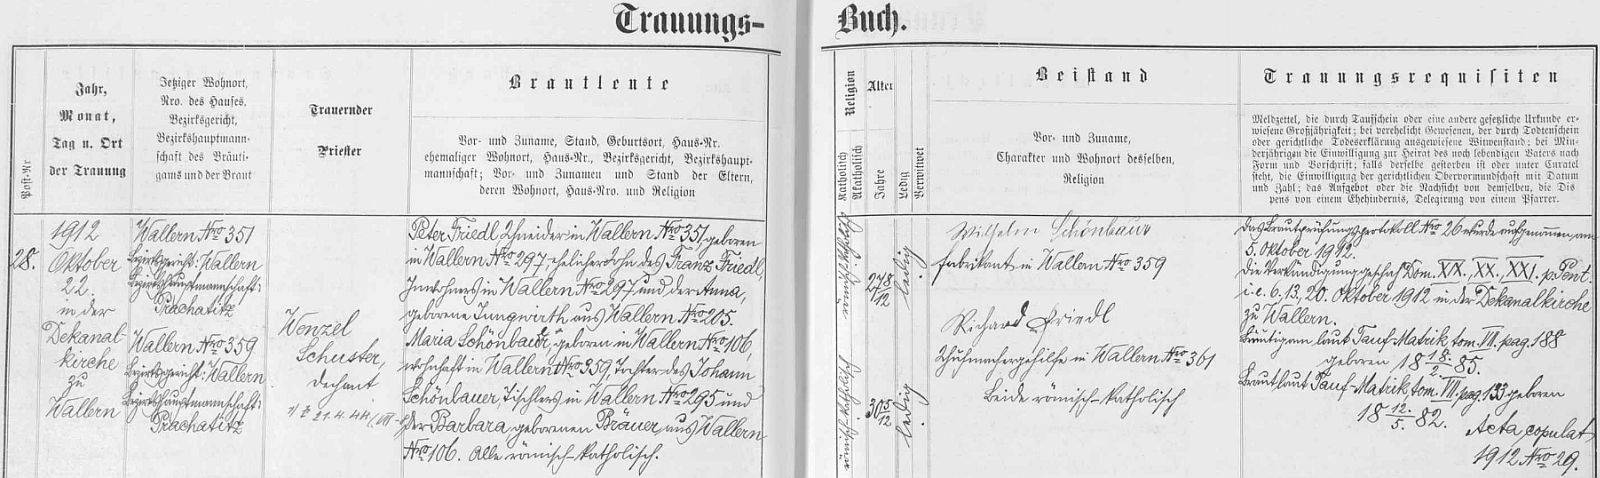 Trauungs-
Buch.
Post-Nr
Jahr,
Monat,
Tag u. Ort
der Trauung
Jetziger Wohnort,
Nro. des Hauses,
Bezirksgericht,
Bezirkshauptmann-
schaft des Bräuti-
gams und der Braut
Trauernder
Priester
Brautleute
Vor- und Zuname, Stand, Geburtsort, Haus-Nr.
ehemaliger Wohnort, Haus-Nr., Bezirksgericht, Bezirkshaupt-
mannschaft; Vor- und Zunamen und Stand der Eltern,
deren Wohnort, Haus-Nro. und Religion
Religion
Katholisch
Akatholisch
Alter
Jahre
Ledig
Verwitwet
Beistand
Vor- und Zuname,
Charakter und Wohnort desselben,
Religion
Trauungsrequisiten
Meldzettel, die durch Taufschein oder eine andere gesetzliche Urkunde er-
wiesene Großjährigkeit; bei verehelicht Gewesenen, der durch Todtenschein
oder gerichtliche Todeserklärung ausgewiesene Witwenstand; bei Min-
derjährigen die Einwilligung zur Heirat des noch lebendigen Vaters nach
Form und Vorschrift; falls derselbe gestorben ist oder unter Curatel
steht, die Einwilligung der gerichtlichen Obervormundschaft mit Datum
und Zahl; das Aufgebot oder die Nachsicht von demselben, die Dis
pens von einem Ehehindernis, Delegirung von einem Pfarrer.
28.
1912
Oktober
22.
in der
Dekanal-
kirche
zu
Wallern
Wallern Nro 351
Bezirksgericht: Wallern
Bezirkshauptmannschaft:
Prachatitz
Wallern Nro 359
Bezirksgericht: Wallern
Bezirkshauptmannschaft:
Prachatitz
Wenzel
Schuster,
Dechant
Peter Friedl, Schneider in Wallern Nro 351, geboren
in Wallern Nro 297, ehelicher Sohn des Franz Friedl,
Inwohners in Wallern Nro 297 und der Anna,
geborene Jungwirth aus Wallern Nro 205.
Maria Schönbauer, geboren in Wallern Nro 106,
wohnhaft in Wallern Nro 359, Tochter des Johann
Schönbauer, Tischlers in Wallern Nro 295 und
der Barbara geborenen Bräuer aus Wallern
Nro 106. Alle römisch-katholisch.
27 8/12
ledig
30 5/12
ledig
Wilhelm Schönbauer
Fabrikant in Wallern Nro 359
Richard Friedl
Schuhmachergehilfe in Wallern Nro 361
Beide römisch-katholisch
Das Brautprüfungsprotokoll Nro 26 wurde aufgenommen am
5. Oktober 1912.
Die Verkündigung geschah Dom. XIX., XX., XXI. p. Pent.
i. e. 6., 13., 20. Oktober 1912 in der Dekanalkirche
zu Wallern.
Bräutigam laut Tauf-Matrik tom. VII. pag. 188
geboren 18 18./2. 85.
Braut laut Tauf-Matrik tom. VII. pag. 133 geboren
18 12./5. 82.
Acta copulat
1912 Nro 29.